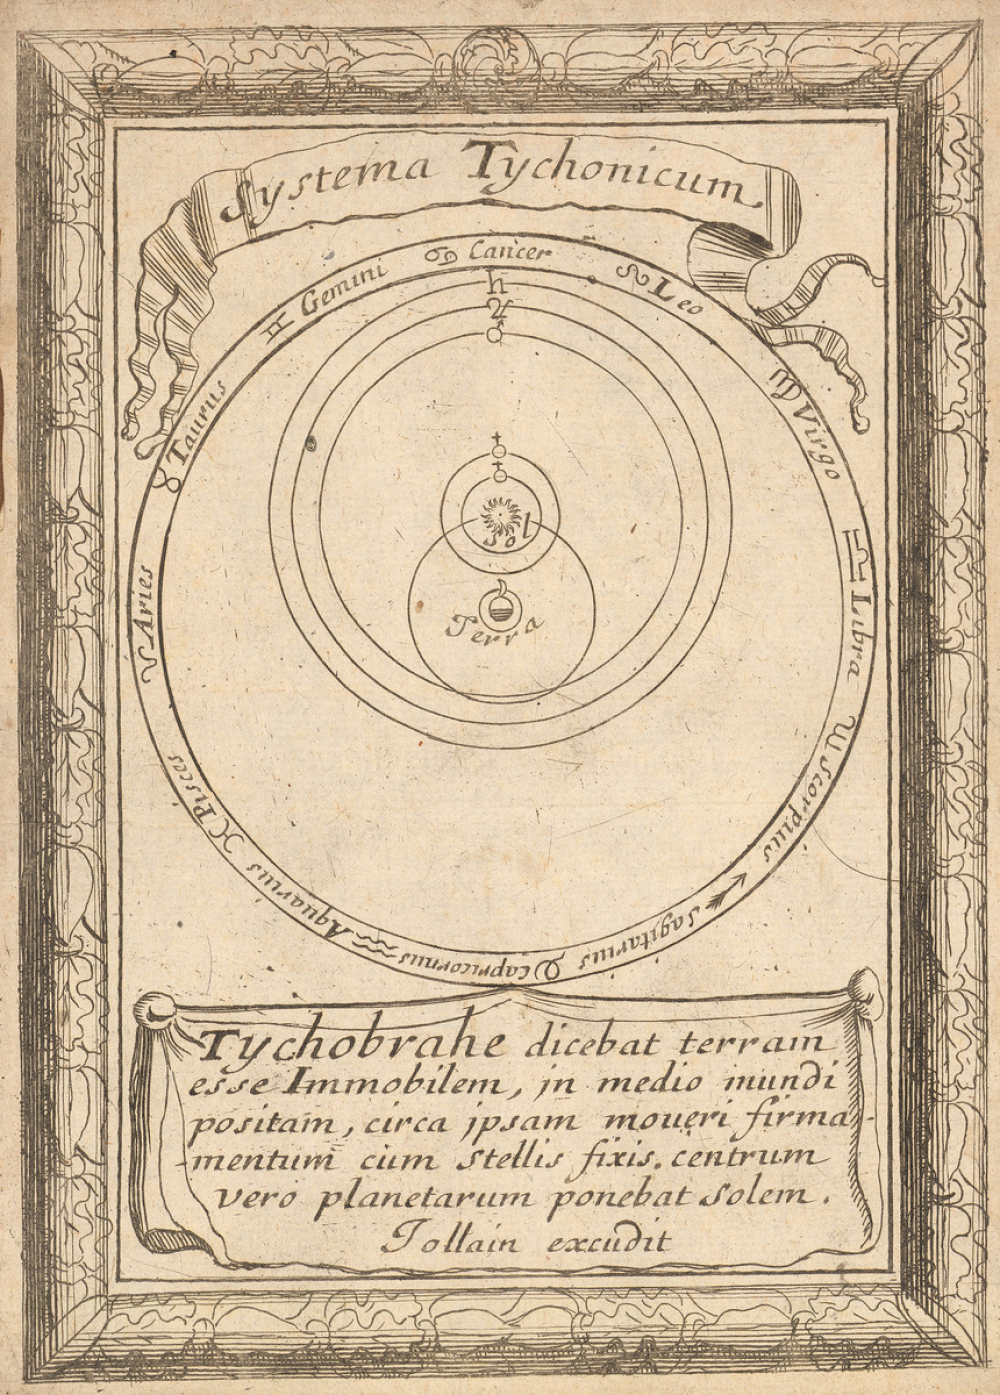 Systema Tychonicum
♋ Cancer
♌ Leo
♍ Virgo
♎ Libra
♏ Scorpius
♐ Sagitarius
♑ Capricornus
♒ Aquarius
♓ Pisces
♈ Aries
♉ Taurus
♊ Gemini
♄
♃
♂
Sol
Terra
Tychobrahe dicebat terram
esse Immobilem, in medio mundi
positam, circa ipsam moueri firma-
mentum cum stellis fixis. centrum
vero planetarum ponebat solem.
Jollain excudit